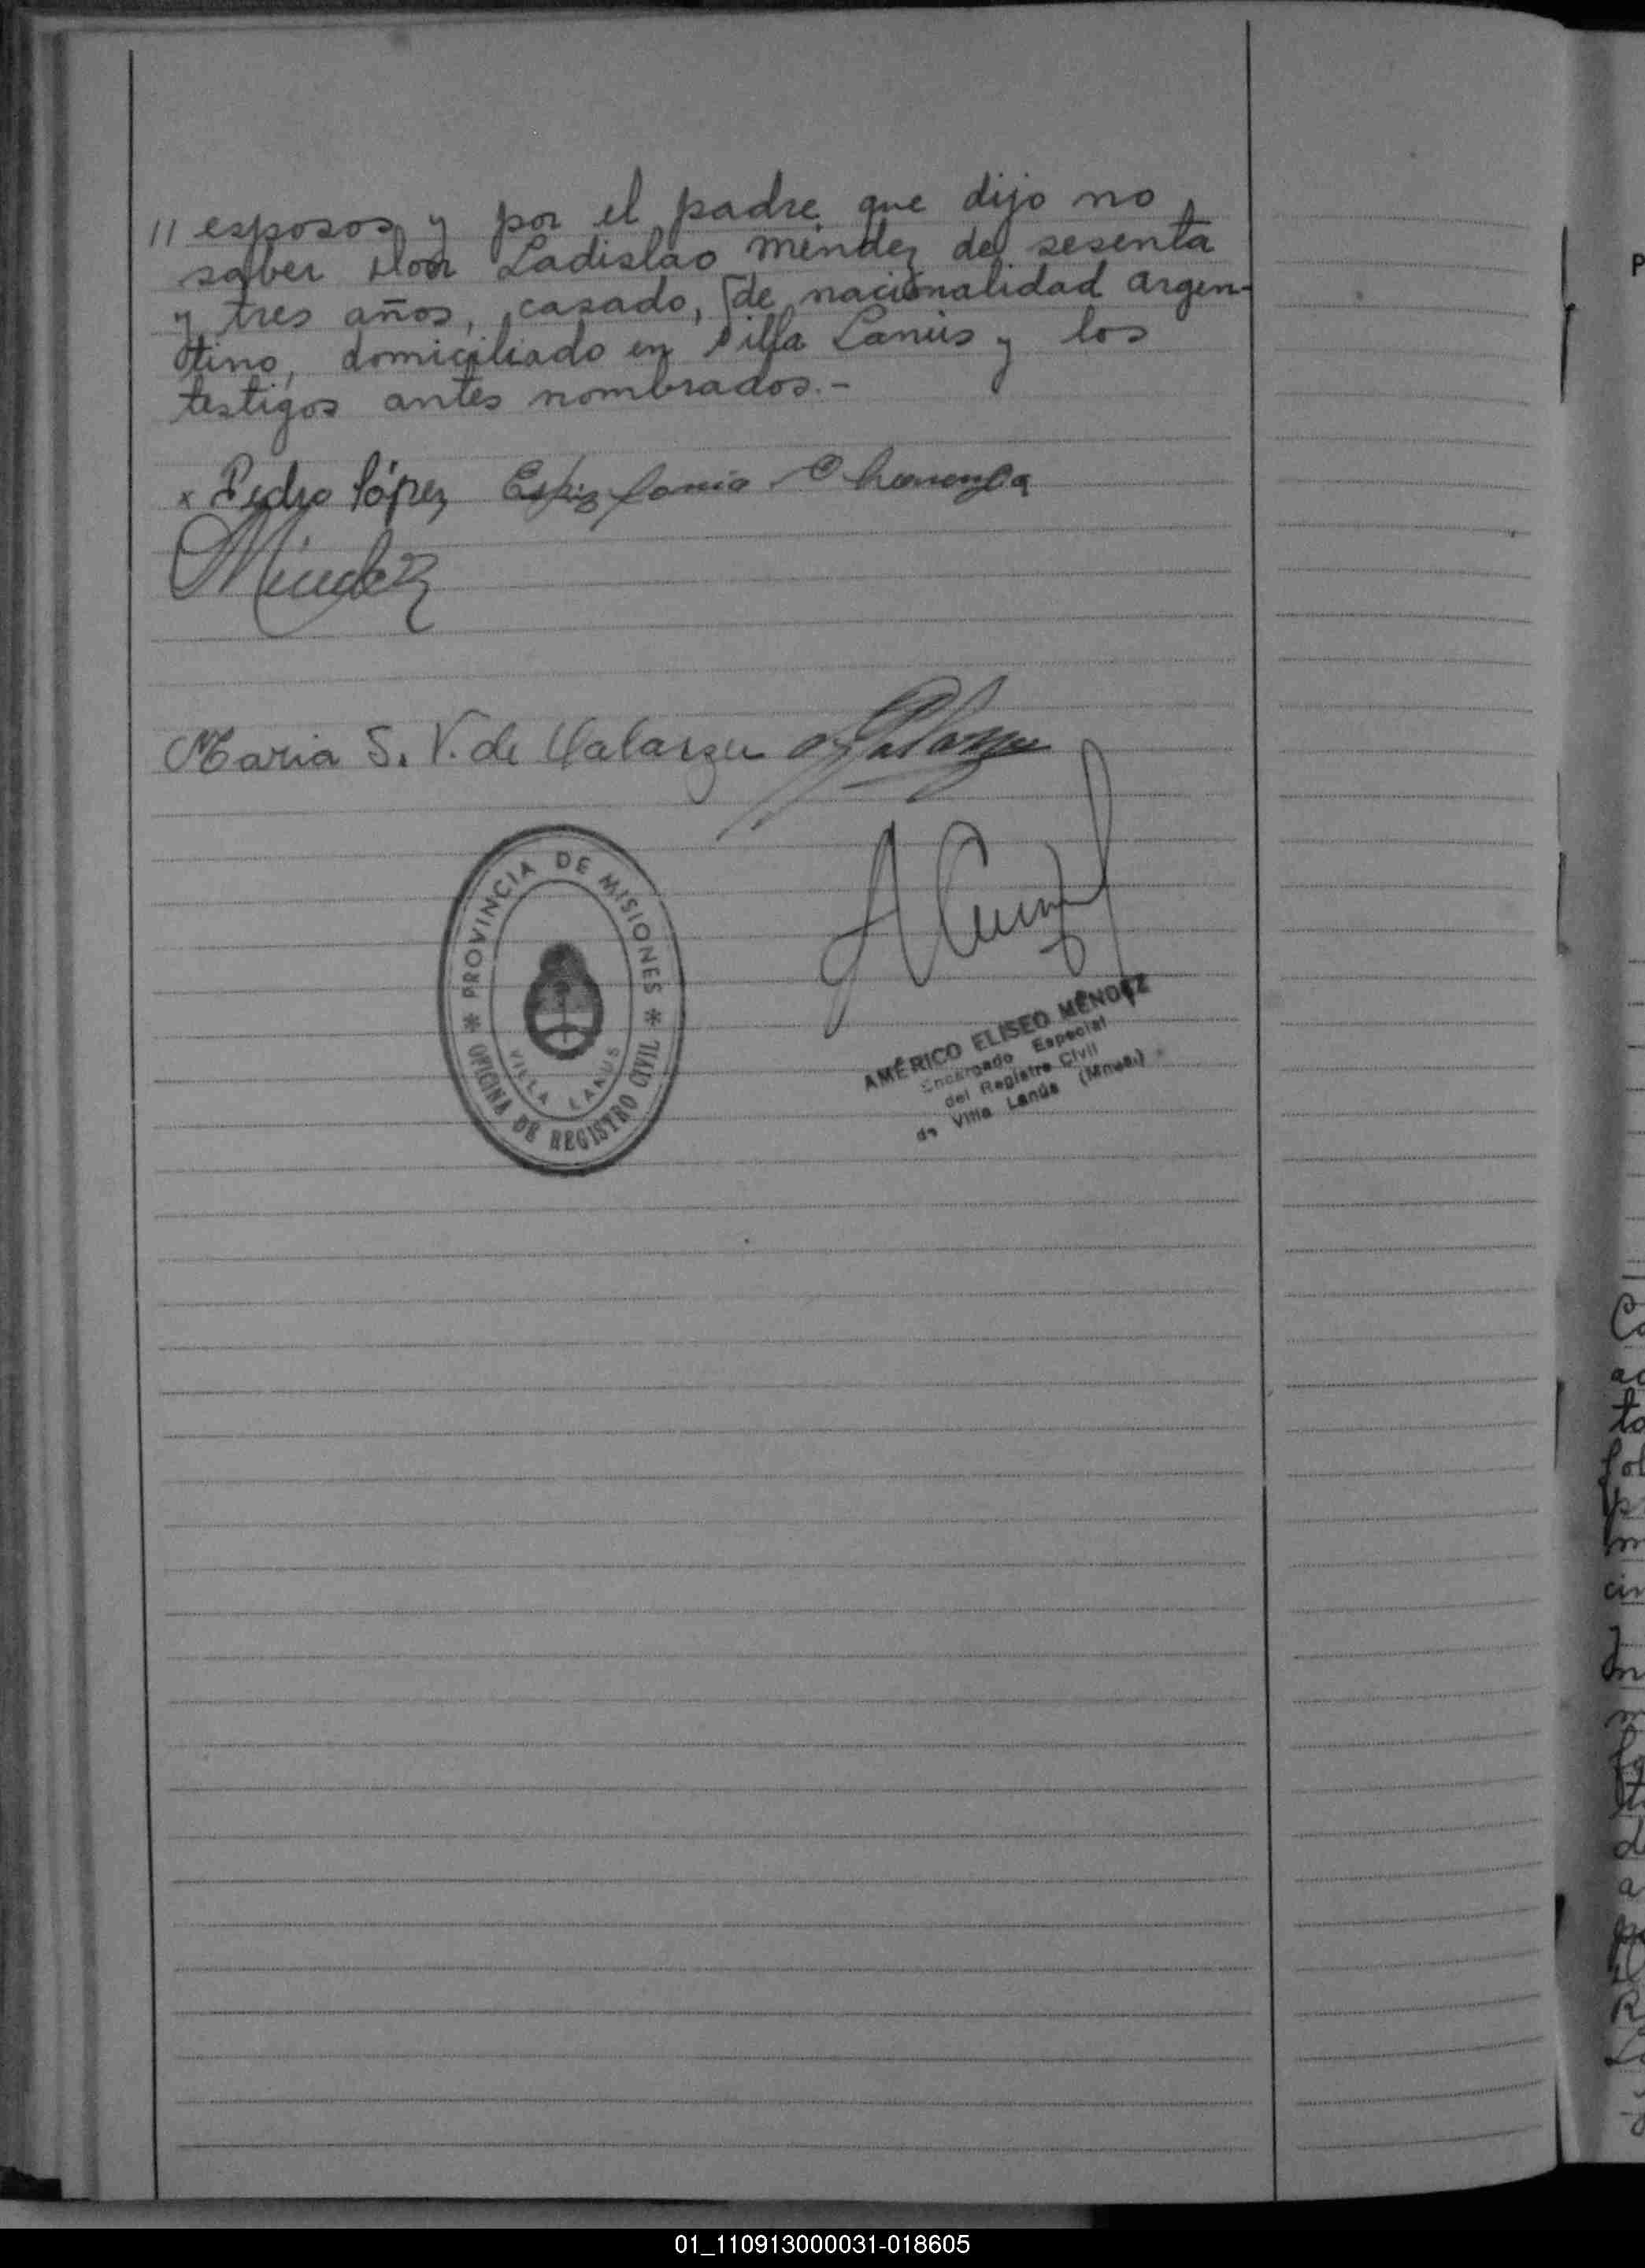 // esposos y por el padre que dijo no
saber Don Ladislao Méndez de sesenta
y tres años, casado, de nacionalidad argen-
tino, domiciliado en Villa Lanús y los
testigos antes nombrados.-
x Pedro López
Méndez
Maria S. V. de
PROVINCIA DE MISIONES
VILLA LANUS
* OFICINA DE REGISTRO CIVIL *
AMÉRICO ELISEO MÉNDEZ
Encargado Especial
del Registro Civil
de Villa Lanús (Mnes.)
01_110913000031-018605